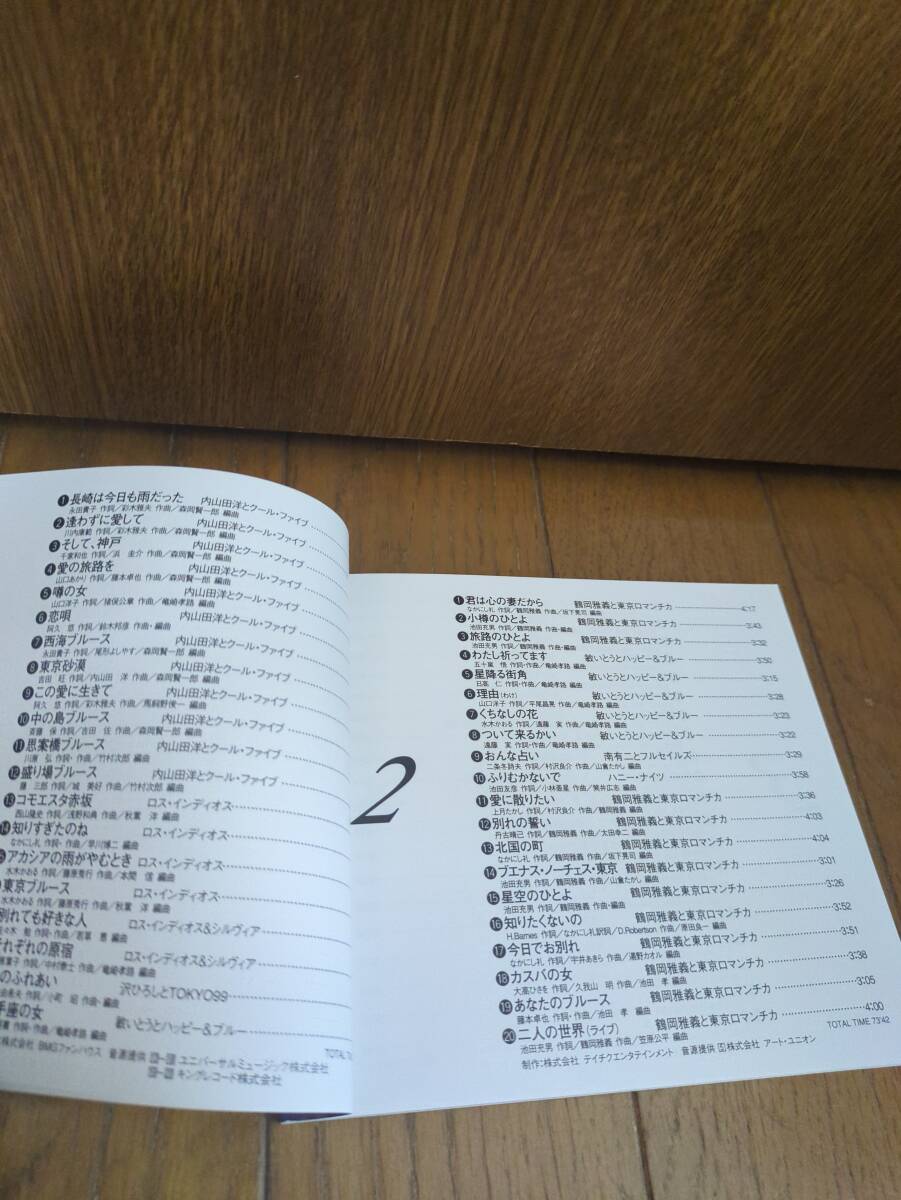 ❶長崎は今日も雨だった 内山田洋とクール・ファイブ
永田貴子 作詞／彩木雅夫 作曲／森岡賢一郎 編曲
❷逢わずに愛して 内山田洋とクール・ファイブ
川内康範 作詞／彩木雅夫 作曲／森岡賢一郎 編曲
❸そして、神戸 内山田洋とクール・ファイブ
千家和也 作詞／浜 圭介 作曲／森岡賢一郎 編曲
❹愛の旅路を 内山田洋とクール・ファイブ
山口あかり 作詞／藤本卓也 作曲／森岡賢一郎 編曲
❺噂の女 内山田洋とクール・ファイブ
山口洋子 作詞／猪俣公章 作曲／竜崎孝路 編曲
❻恋唄 内山田洋とクール・ファイブ
阿久 悠 作詞／鈴木邦彦 作曲・編曲
❼西海ブルース 内山田洋とクール・ファイブ
永田貴子 作詞／尾形よしやす 作曲／森岡賢一郎 編曲
❽東京砂漠 内山田洋とクール・ファイブ
吉田 旺 作詞／内山田 洋 作曲／森岡賢一郎 編曲
❾この愛に生きて 内山田洋とクール・ファイブ
阿久 悠 作詞／彩木雅夫 作曲／馬飼野俊一 編曲
❿中の島ブルース 内山田洋とクール・ファイブ
斎藤 保 作詞／吉田 佐 作曲／森岡賢一郎 編曲
⓫思案橋ブルース 内山田洋とクール・ファイブ
川原 弘 作詞・作曲／竹村次郎 編曲
⓬盛り場ブルース 内山田洋とクール・ファイブ
藤 三郎 作詞／城 美好 作曲／竹村次郎 編曲
⓭コモエスタ赤坂 ロス・インディオス
西山隆史 作詞／浅野和典 作曲／秋葉 洋 編曲
⓮知りすぎたのね ロス・インディオス
なかにし礼 作詞・作曲／早川博二 編曲
アカシアの雨がやむとき ロス・インディオス
水木かおる 作詞／藤原秀行 作曲／本間 信 編曲
東京ブルース ロス・インディオス
水木かおる 作詞／藤原秀行 作曲／秋葉 洋 編曲
別れても好きな人 ロス・インディオス&シルヴィア
々木 勉 作詞・作曲／若草 恵 編曲
それぞれの原宿 ロス・インディオス&シルヴィア
作詞／中村泰士 作曲／竜崎孝路 編曲
のふれあい 沢ひろしとTOKYO99
作詞／小町 昭 作曲・編曲
座の女 敏いとうとハッピー&ブルー
作詞・作曲／竜崎孝路 編曲
TOTAL
株式会社 BMGファンハウス 音源提供 ユニバーサルミュージック株式会社
キングレコード株式会社
2
❶君は心の妻だから 鶴岡雅義と東京ロマンチカ 4:17
なかにし礼 作詞／鶴岡雅義 作曲／坂下晃司 編曲
❷小樽のひとよ 鶴岡雅義と東京ロマンチカ 3:43
池田充男 作詞／鶴岡雅義 作曲・編曲
❸旅路のひとよ 鶴岡雅義と東京ロマンチカ 3:32
池田充男 作詞／鶴岡雅義 作曲・編曲
❹わたし祈ってます 敏いとうとハッピー&ブルー 3:50
五十嵐 悟 作詞・作曲／竜崎孝路 編曲
❺星降る街角 敏いとうとハッピー&ブルー 3:15
日高 仁 作詞・作曲／竜崎孝路 編曲
❻理由(わけ) 敏いとうとハッピー&ブルー 3:28
山口洋子 作詞／平尾昌晃 作曲／竜崎孝路 編曲
❼くちなしの花 敏いとうとハッピー&ブルー 3:23
水木かおる 作詞／遠藤 実 作曲／竜崎孝路 編曲
❽ついて来るかい 敏いとうとハッピー&ブルー 3:22
遠藤 実 作詞・作曲／竜崎孝路 編曲
❾おんな占い 南有二とフルセイルズ 3:29
二条冬詩夫 作詞／村沢良介 作曲／山倉たかし 編曲
❿ふりむかないで ハニー・ナイツ 3:58
池田友彦 作詞／小林亜星 作曲／筒井広志 編曲
⓫愛に散りたい 鶴岡雅義と東京ロマンチカ 3:36
上月たかし 作詞／村沢良介 作曲／山倉たかし 編曲
⓬別れの誓い 鶴岡雅義と東京ロマンチカ 4:03
丹古晴己 作詞／鶴岡雅義 作曲／太田幸二 編曲
⓭北国の町 鶴岡雅義と東京ロマンチカ 4:04
なかにし礼 作詞／鶴岡雅義 作曲／坂下晃司 編曲
⓮ブエナス・ノーチェス・東京 鶴岡雅義と東京ロマンチカ 3:01
池田充男 作詞／鶴岡雅義 作曲／山倉たかし 編曲
⓯星空のひとよ 鶴岡雅義と東京ロマンチカ 3:26
池田充男 作詞／鶴岡雅義 作曲・編曲
⓰知りたくないの 鶴岡雅義と東京ロマンチカ 3:52
H.Barnes 作詞／なかにし礼訳詞／D.Robertson 作曲／原田良一 編曲
⓱今日でお別れ 鶴岡雅義と東京ロマンチカ 3:51
なかにし礼 作詞／宇井あきら 作曲／湯野カオル 編曲
⓲カスバの女 鶴岡雅義と東京ロマンチカ 3:38
大高ひさを 作詞／久我山 明 作曲／池田 孝 編曲
⓳あなたのブルース 鶴岡雅義と東京ロマンチカ 3:05
藤本卓也 作詞・作曲／池田 孝 編曲
⓴二人の世界(ライブ) 鶴岡雅義と東京ロマンチカ 4:00
池田充男 作詞／鶴岡雅義 作曲／笠原公平 編曲
TOTAL TIME 73'42
制作：株式会社 テイチクエンタテインメント 音源提供 ⑤株式会社 アート・ユニオン